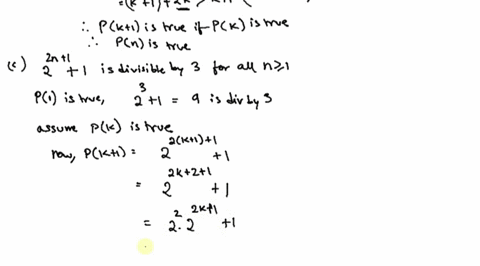 =(k+1)+2k
∴ P(k+1) is true if P(k) is true
∴ P(n) is true
(c) 2^{2n+1} + 1 is divisible by 3 for all n≥1
P(1) is true, 2^3 + 1 = 9 is div by 3
assume P(k) is true
now, P(k+1) = 2^{2(k+1)+1} + 1
= 2^{2k+2+1} + 1
= 2^2 · 2^{2k+1} + 1